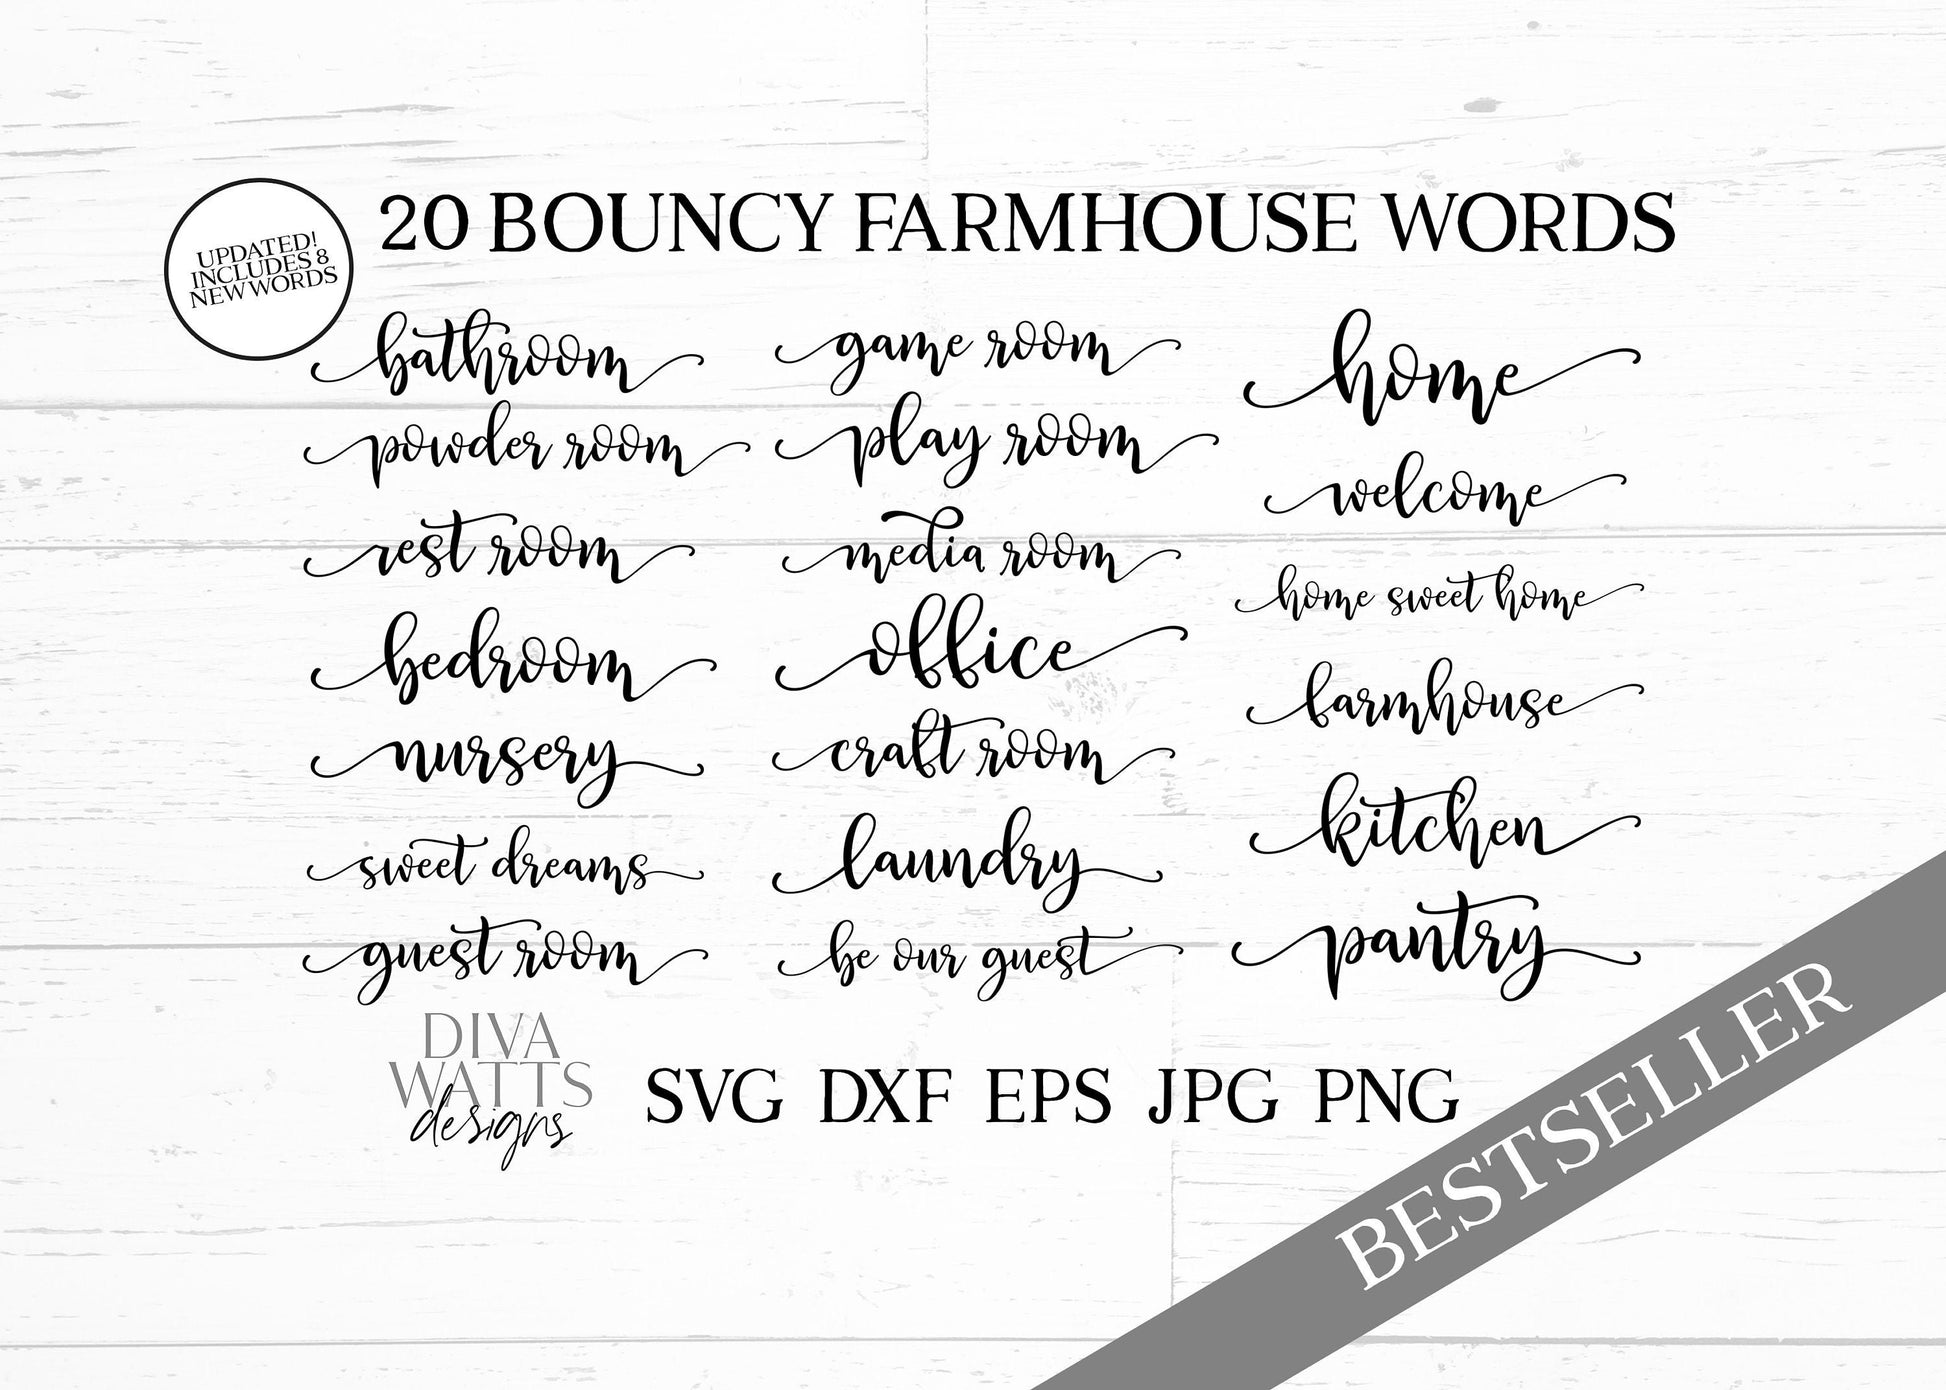 UPDATED!
INCLUDES 8
NEW WORDS
20 BOUNCY FARMHOUSE WORDS
bathroom
powder room
rest room
bedroom
nursery
sweet dreams
guest room
game room
play room
media room
office
craft room
laundry
be our guest
home
welcome
home sweet home
farmhouse
kitchen
pantry
DIVA
WATTS
designs
SVG DXF EPS JPG PNG
BESTSELLER